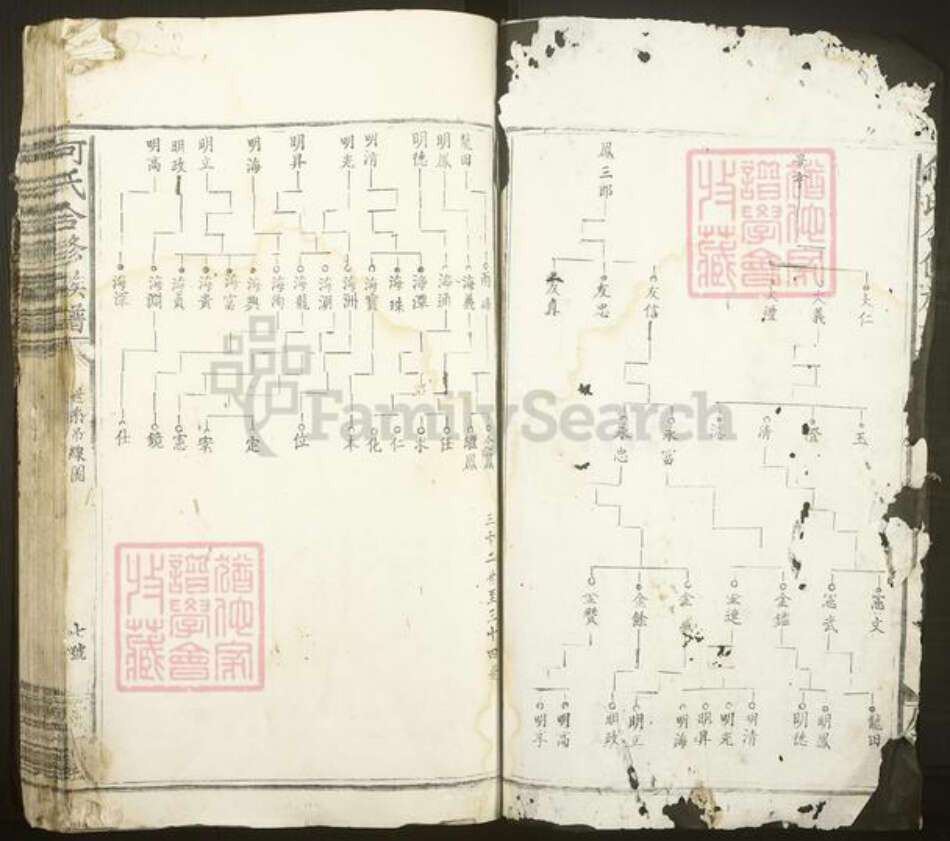 鳳三郎
文仁
大義
大禮
友信
友忠
友真
玉
澄
清
永富
永忠
富文
富武
金鑑
金達
金餘
金贊
龍田
明鳳
明德
明清
明光
明昇
明海
明立
明政
明高
明亨
龍田
明鳳
明德
明清
明光
明昇
明海
明立
明政
明高
海義
海涵
海潭
海珠
海寶
海洲
海潮
海龍
海洵
海興
海富
海貴
海貢
海淵
海深
繼鳳
仁
化
位
定
憲
鏡
仕
三十二世至三十四世
何氏合修族譜
世系吊線圖
七號
猶他家譜學會收藏
猶他家譜學會收藏
FamilySearch